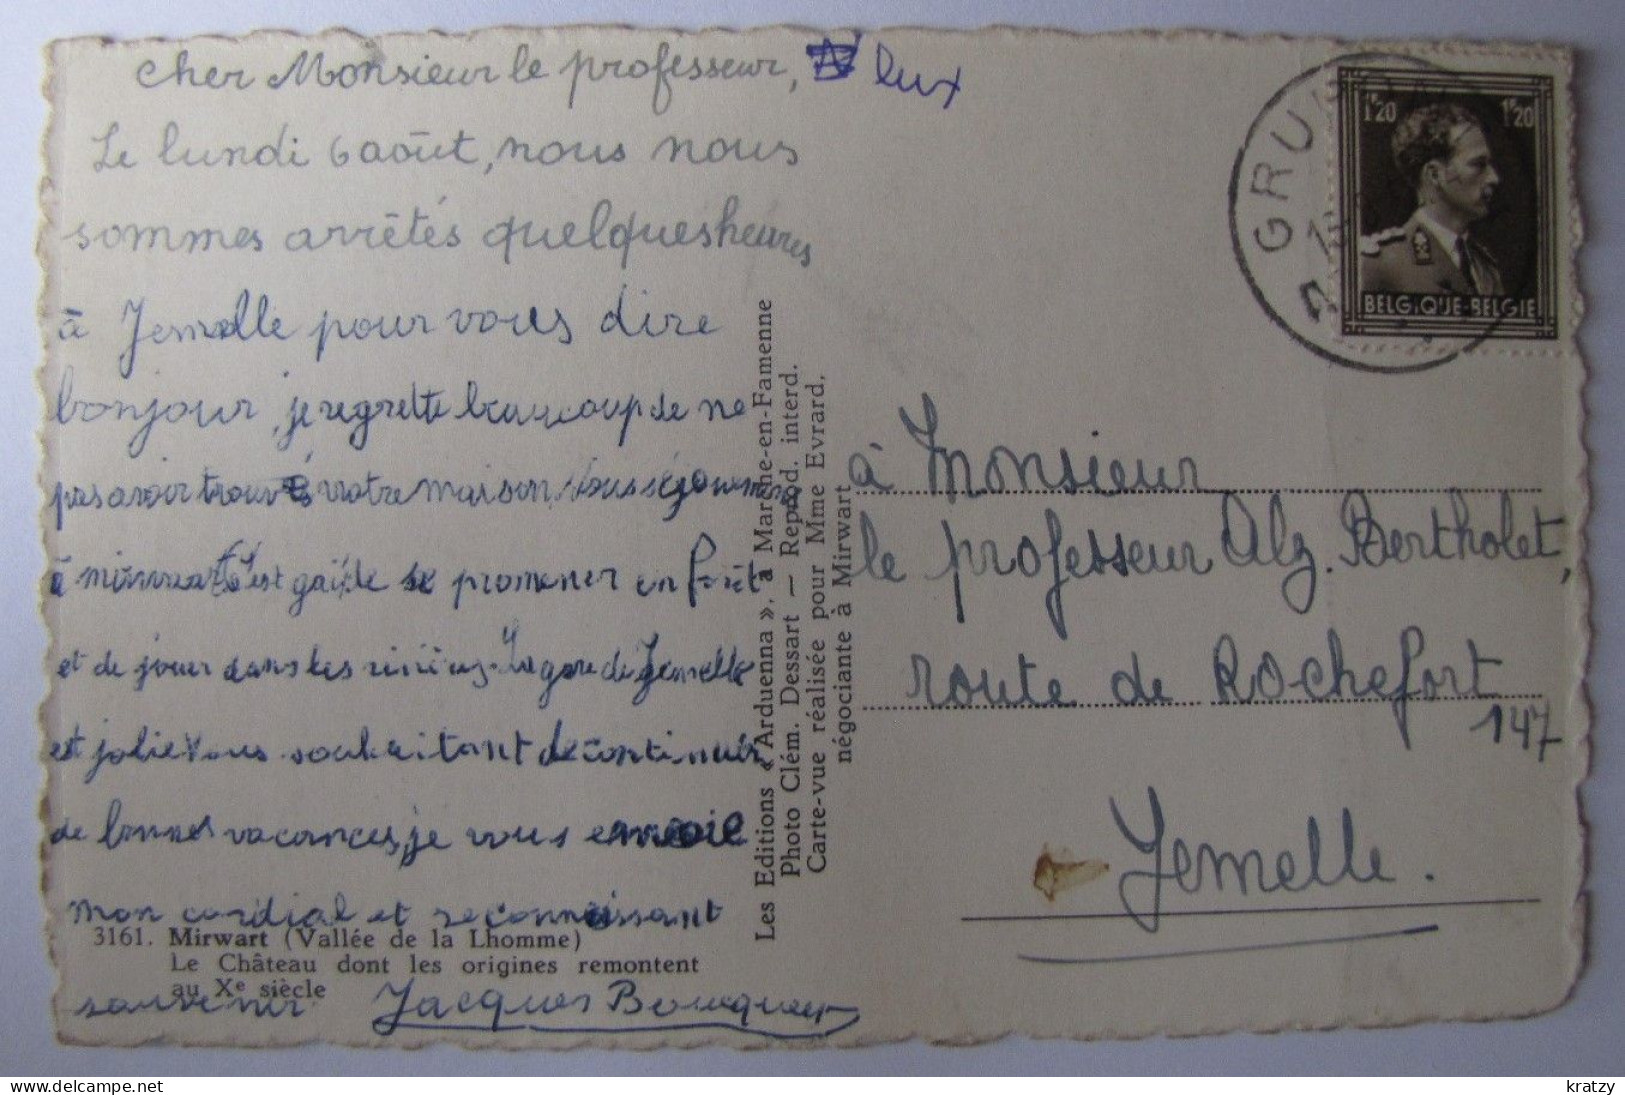 cher Monsieur le professeur, lux
Le lundi 6 août, nous nous
sommes arrêtés quelques heures
à Jemelle pour vous dire
bonjour, je regrette beaucoup de ne
pas avoir trouvé votre maison. Nous séjournons
à mirwart. C'est gai de se promener en forêt
et de jouer dans les rivières. La gare de Jemelle
est jolie Vous souhaitant de continuer
de bonnes vacances, je vous envoie
mon cordial et reconnaissant
souvenir Jacques Bouquey
3161. Mirwart (Vallée de la Lhomme)
Le Château dont les origines remontent
au Xe siècle
Les Editions « Arduenna », à Marche-en-Famenne
Photo Clém. Dessart — Reprod. interd.
Carte-vue réalisée pour Mme Evrard,
négociante à Mirwart
GRU
1F20 1F20
BELGIQUE-BELGIE
à Monsieur
le professeur Alz. Bertholet,
route de Rochefort
147
Jemelle.
kratzy